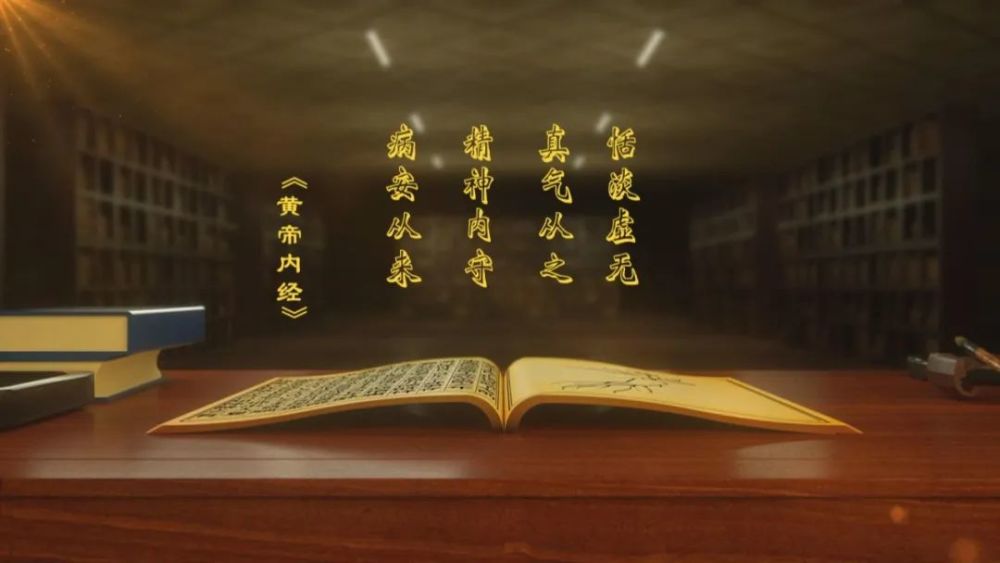 恬淡虚无
真气从之
精神内守
病安从来
《黄帝内经》